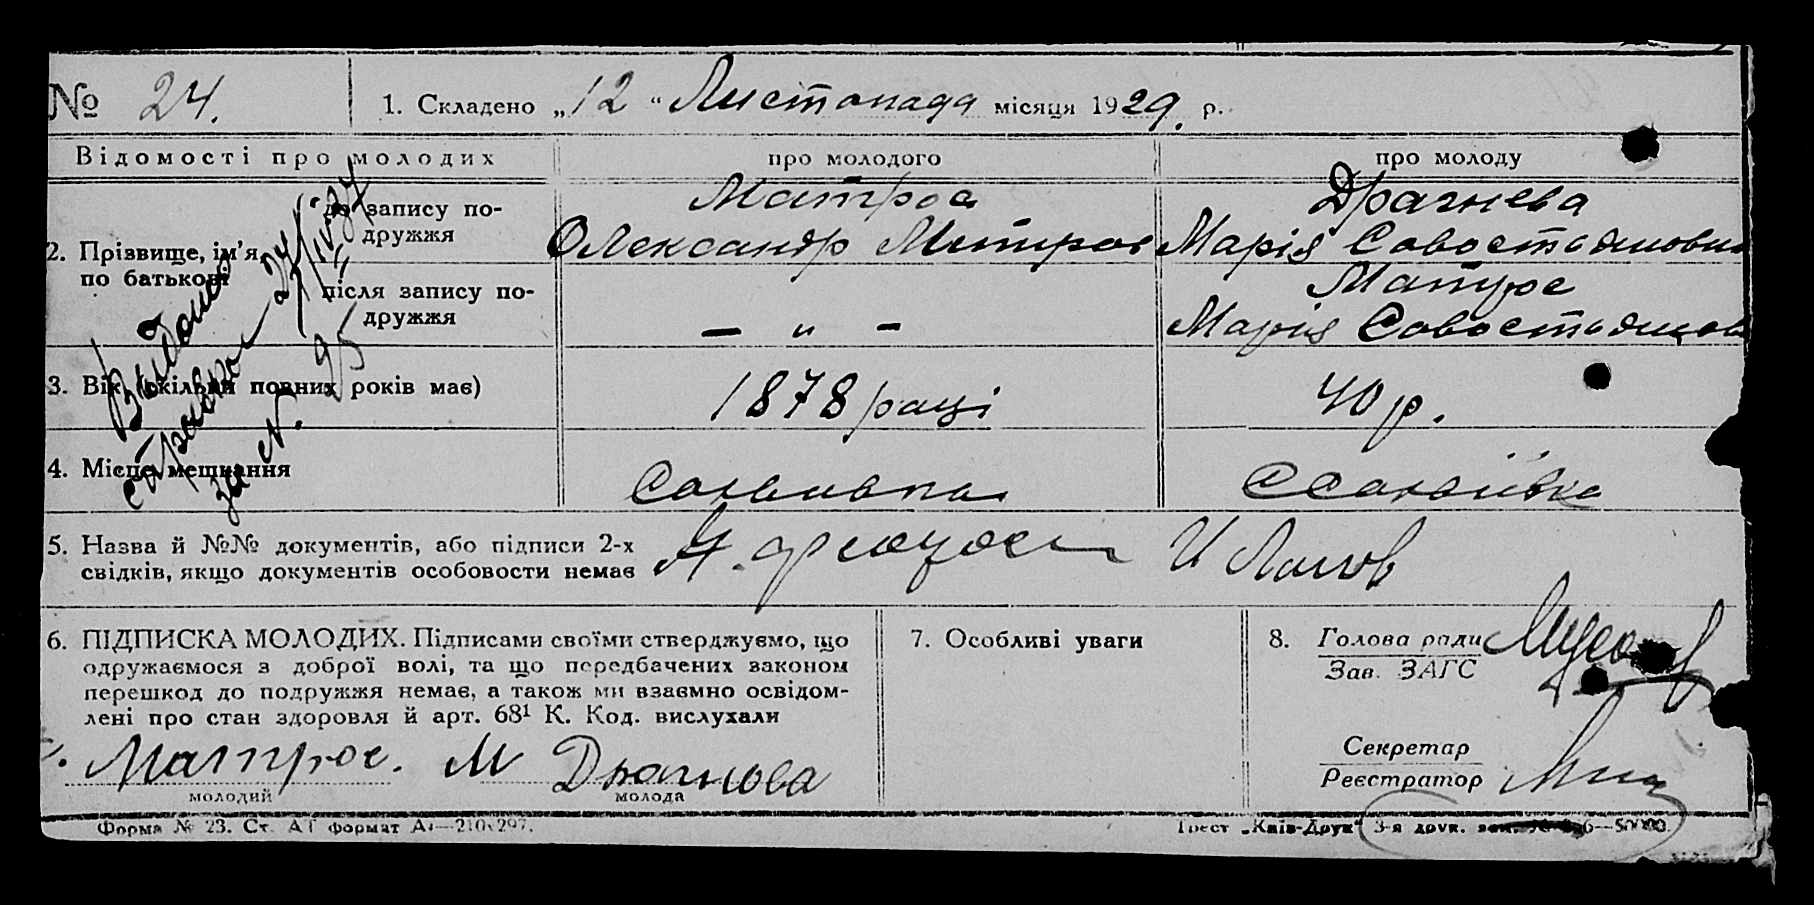 № 24. 1. Складено „12“ Листопада місяця 1929. р.
Відомості про молодих про молодого про молоду
2. Прізвище, ім'я, по батькові
до запису подружжя
Матрос
Олександр Митров
Драгнева
Марія Савостьяновна
після запису подружжя
— „ —
Матрос
Марія Савостьянов
3. Вік (скільки повних років має) 1878 році 40 р.
4. Місце мешкання
5. Назва й №№ документів, або підписи 2-х
свідків, якщо документів особовости немає
6. ПІДПИСКА МОЛОДИХ. Підписами своїми стверджуємо, що
одружаємося з доброї волі, та що передбачених законом
перешкод до подружжя немає, а також ми взаємно освідом-
лені про стан здоровля й арт. 68¹ К. Код. вислухали
Матрос. М Драгнова
молодий молода
7. Особливі уваги
8. Голова ради
Зав. ЗАГС
Секретар
Реєстратор
Видано
за №. 95
Форма № 23. Ст. АГ формат А4—210×297.
Трест „Київ-Друк“ 3-я друк.